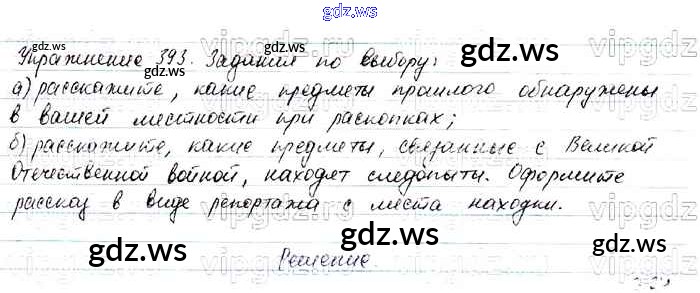 gdz.ws
Упражнение 393. Задания по выбору:
gdz.ws gdz.ws
а) расскажите, какие предметы прошлого обнаружены
в вашей местности при раскопках;
б) расскажите, какие предметы, связанные с Великой
Отечественной войной, находят следопыты. Оформите
рассказ в виде репортажа с места находки.
gdz.ws gdz.ws gdz.ws
Решение